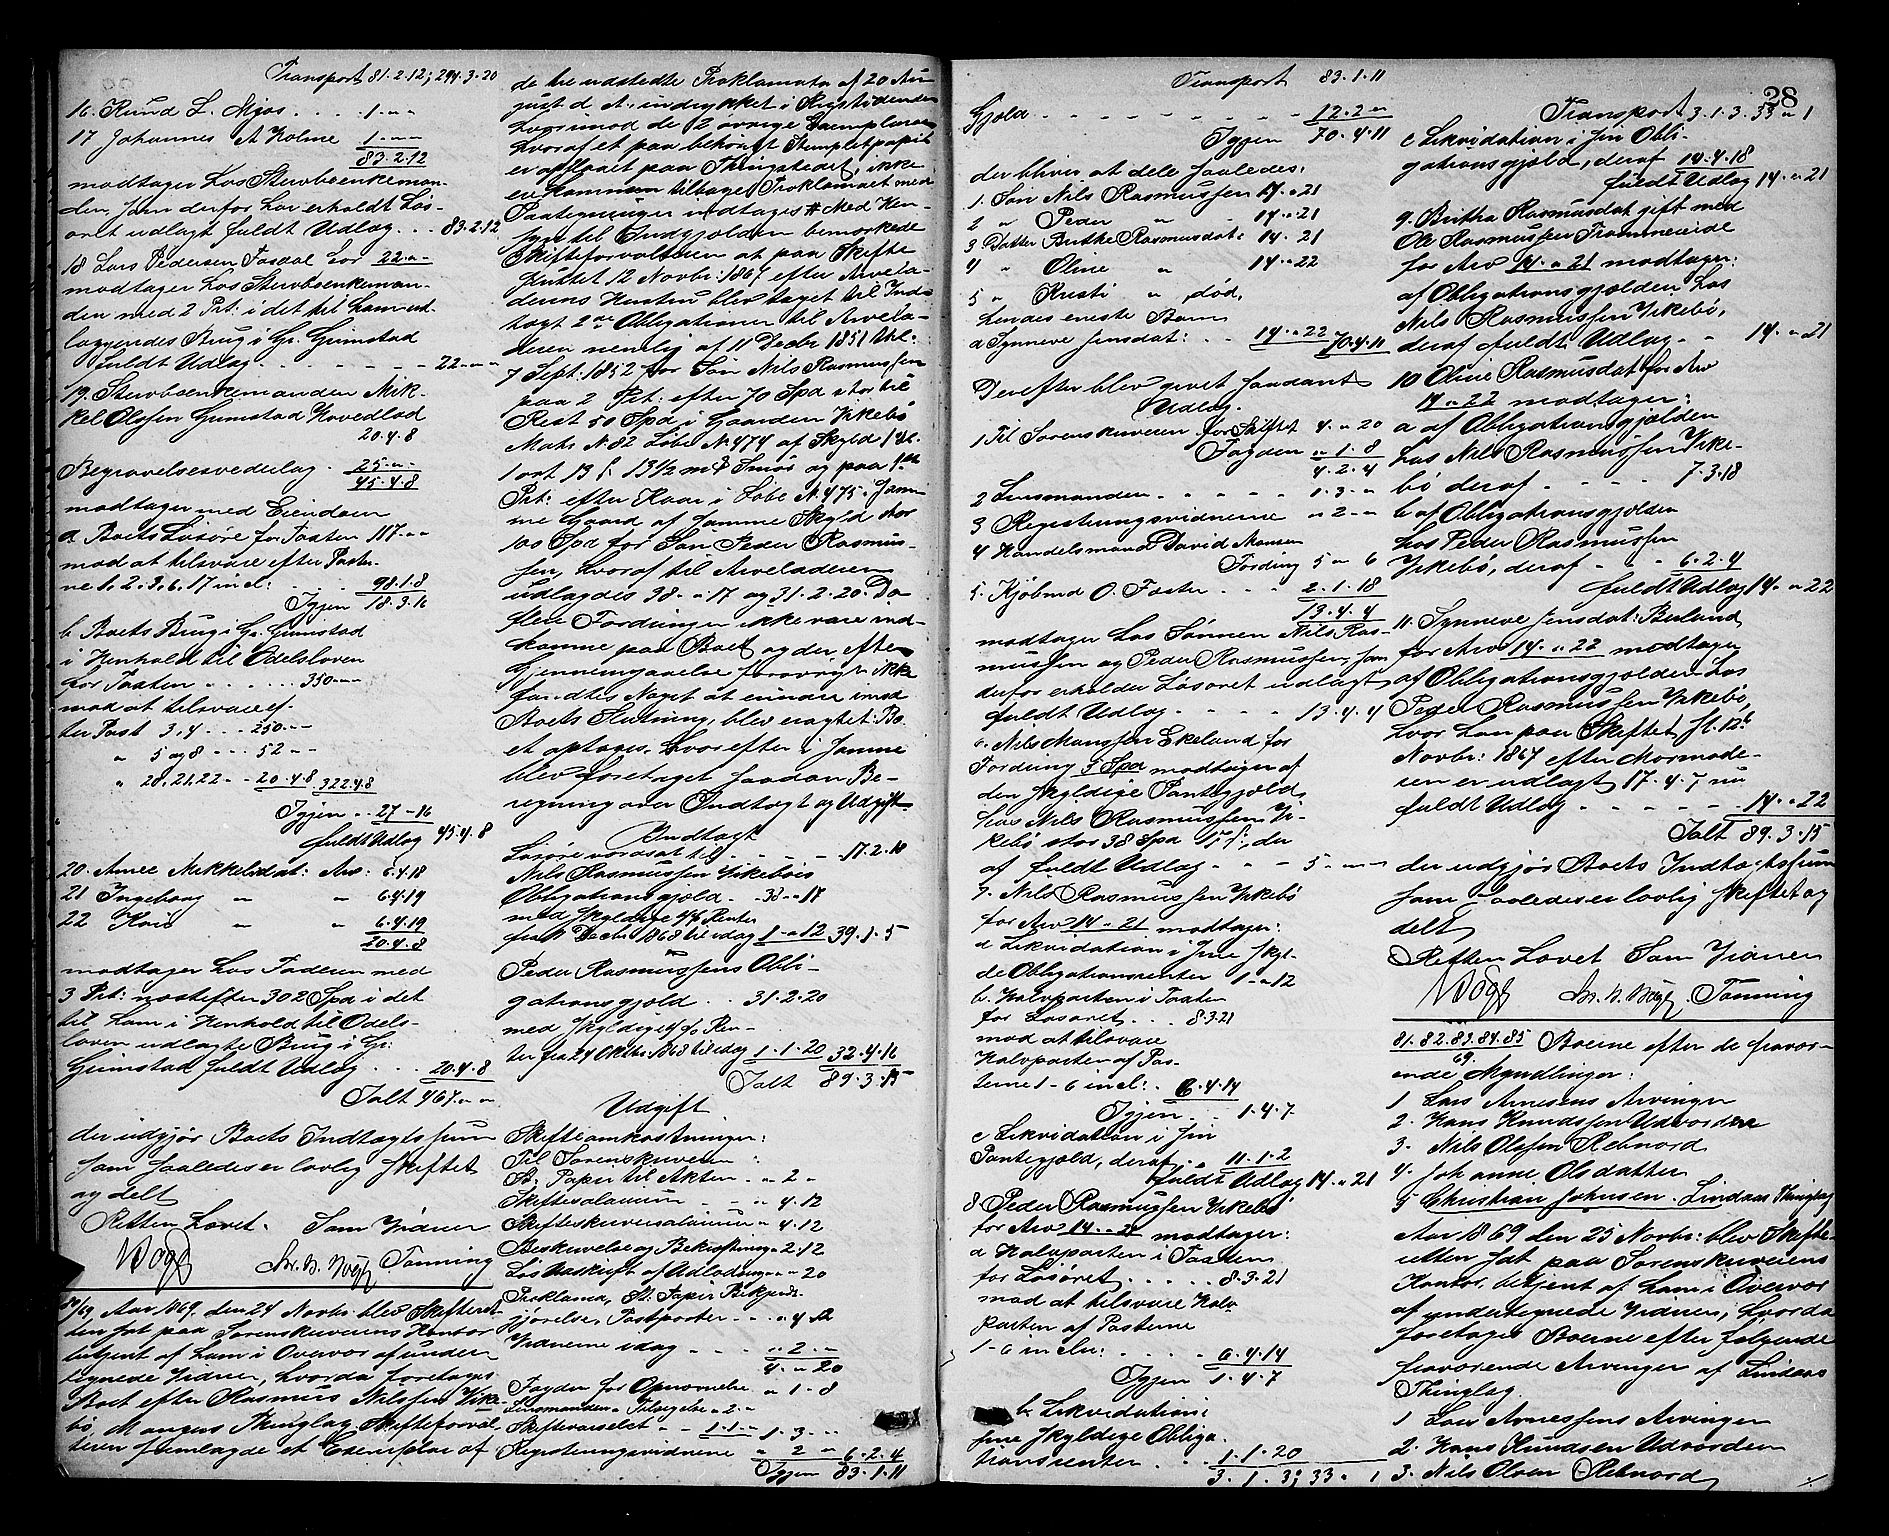 Transport 81.2.12; 294.3.20
16. Knud L. Mjøs . . . . 1 " "
17 Johannes A Holme 1 " "
83.2.12
modtager hos Stervboenkeman-
den, som derfor har erholdt Løs-
øret udlagt fuldt Udlæg . . 83.2.12
18 Lars Pedersen Fosdal for 22 " "
modtager hos Stervboenkeman-
den med 2 Prt: i det til ham ud-
læggendes Brug i Gr. Grimstad
fuldt Udlæg . . . . . . 22 " "
19. Stervboenkemanden Mik-
kel Olssen Grimstad Hovedlod
20.4.8
Begravelsesvederlag . 25 " "
45.4.8
modtager med Eiendom
a. Boets Løsøre for Taxten 117 " "
mod at tilsvare efter Poster-
ne 1. 2. 3. 6. 17 incl: 98.1.8
Igjen 18.3.16
b. Boets Brug i Gr. Grimstad
i Henhold til Odelsloven
for Taxten . . . . . 350 " "
mod at tilsvare ef-
ter Post 3. 4 . . . 250 " "
" 5 og 8 . . . 52 " "
" 20. 21. 22 " 20.4.8 322.4.8
Igjen . . 27 " 16
fuldt Udlæg 45.4.8
20. Anne Mikkelsdat: Arv: 6.4.18
21 Ingeborg " " 6.4.19
22 Kari " " 6.4.19
20.4.8
modtager hos Faderen med
3 Prt: næstefter 302 Spd i det
til ham i Henhold til Odels-
loven udlagte Brug i Gr:
Grimstad fuldt Udlæg . . . 20.4.8
Ialt 467 " "
der udgjør Boets Indtægtssum
som saaledes er lovlig skiftet
og delt
Retten hævet. Som Vidner
Tønning
Aar 1869. den 24 Novbr: blev Skifteret-
ten sat paa Sorenskriverens Kontor
betjent af ham i Overvær af under-
tegnede Vidner, hvorda foretoges
Boet efter Rasmus Nilssen Vike-
bø, Mangers Thinglag. Skifteforval-
teren fremlagde et Exemplar af
de tre udstedte Proklamata af 20 Au-
gust d. A. indrykket i Kristidende
hvorimod de 2 øvrige Exemplarer
hvoraf et paa behørigt Stemplet papir
er opslaaet paa Thingstedet, ikke
ere kommen tilbage. Proklamaet med
Paategninger indtages # Med Hen-
syn til Indgjælden bemærkede
Skifteforvalteren at paa Skifte
sluttet 12 Novbr: 1867 efter Arvela-
derens Hustru blev taget til Ind-
tægt 2de Obligationer til Arvela-
deren nemlig af 11 Decbr 1851 thl.
7 Sept: 1852 for Søn Nils Rasmussen
paa 2 Prt: efter 70 Spd stor til
Rest 50 Spd i Gaarden Vikebø
Matr N. 82 Løbe N. 474 af Skyld 1 dl.
1 ort 13 s. 13 1/2 m# Smør og paa 1ste
Prt: efter Kaar i Løbe N. 475. Sam-
me Gaard af samme Skyld stor
100 Spd for Søn Peder Rasmus-
sen, hvoraf til Arveladeren
udlagdes 38 " 17 og 31.2.20. Da
flere Fordringer ikke vare ind-
komne paa Boet og der efter
Gjennemgaaelse forøvrigt ikke
fandtes Noget at erindre imod
Boets Slutning, blev eragtet: Bo-
et optages. Hvorefter i samme
blev foretaget saadan Be-
regning over Indtægt og Udgift
Indtægt
Løsøre værdsat til . . . . 17.2.18
Nils Rasmussen Vikebøs
Obligationsgjæld . . 38 " 17
med skyldige 4% Renter
fra 11 Decbr 1868 til idag 1 " 12 39.1.5
Peder Rasmussens Obli-
gationsgjæld . . 31.2.20
med skyldige 4% Ren-
ter fra 21 Oktbr. 1868 til idag 1.1.20 32.4.16
Ialt 89.3.15
Udgift
Skifteomkostninger:
Til Sorenskriveren:
St. Papir til Akten . " 2 "
Skiftesalarium . . " 4.12
Skifteskriversalarium " 4.12
Beskrivelse og Bekræftning " 2.12
Løs Udskrift af Udlodning " " 20
Proklama, St: Papir Bekjendt-
gjørelse, Postporter . . " 4.12
Vidnerne idag . . . " 2 "
4. " 20
Sagden for Opnævnelse " 1.8
Lensmanden " Tilsigelse " 2 "
Skiftevarselet . . 1.1 " 1.3 "
Registreringsvidnerne " 2 " 6.2.4
Igjen 83.1.11
Transport 83.1.11
Gjæld . . . . . . . . 12.2 "
Igjen 70.4.11
der bliver at dele saaledes:
1. Søn Nils Rasmussen 14 " 21
2 " Peder " 14 " 21
3 Datter Brithe Rasmusdat: 14 " 21
4 " Oline " 14 " 22
5 " Kristi " død,
hendes eneste Barn
a Synneve Jensdat: . . 14 " 22 70.4.11
Derefter blev givet saadant
Udlæg.
1 Til Sorenskriveren for Skiftet 4 " 20
Sagden " 1.8
4.2.4
2 Lensmanden . . . . . 1.3 "
3 Registreringsvidnerne " 2 "
4 Handelsmand David Monsen
Fordring 5 " 6
5. Kjøbmd O. Foster . . . 2.1.18
13.4.4
modtager hos Sønnen Nils Ras-
mussen og Peder Rasmussen, som
derfor erholder Løsøret udlagt
fuldt Udlæg . . . . 13.4.4
6. Nils Monssen Ekeland for
Fordring 5 Spd modtager af
den skyldige Pantegjæld
hos Nils Rasmussen Vi-
kebø stor 38 Spd 17 s:, der
af fuldt Udlæg . . . 5 " "
7. Nils Rasmussen Vikebø
for Arv 14 " 21 modtager:
a Likvidation i sine skyl-
de Obligationsrenter 1 " 12
b. Halvparten i Taxten
for Løsøret . . . 8.3.21
mod at tilsvare
Halvparten af Pos-
terne 1-6 incl: . 6.4.14
Igjen . . 1.4.7
c Likvidation i sin
Pantegjæld, deraf . 11.1.2
fuldt Udlæg 14 " 21
8 Peder Rasmussen Vikebø
for Arv 14 " 21 modtager:
a Halvparten i Taxten
for Løsøret . . . . . 8.3.21
mod at tilsvare Halv
parten af Posterne
1-6 incl: . . . . 6.4.14
Igjen 1.4.7
b. Likvidation i
sine skyldige Obliga-
tionsrenter . . . 1.1.20
3.1.3; 33 " 1
28
Transport 3.1.3. 33 " 1
c Likvidation i sin Obli-
gationsgjæld, deraf 14.4.18
fuldt Udlæg 14 " 21
9. Britha Rasmusdat gift med
Ole Rasmussen Trommereide
for Arv 14 " 21 modtager:
af Obligationsgjælden hos
Nils Rasmussen Vikebø,
deraf fuldt Udlæg . . 14 " 21
10 Oline Rasmusdat for Arv
14 " 22 modtager:
a af Obligationsgjælden
hos Nils Rasmussen Vike-
bø deraf . . . . 7.3.18
b af Obligationsgjælden
hos Peder Rasmussen
Vikebø, deraf . . . 6.2.4
fuldt Udlæg 14 " 22
11. Synneve Jensdat: Birland
for Arv 14 " 22 modtager
af Obligationsgjælden hos
Peder Rasmussen Vikebø,
hvor han paa Skiftet sl. 12te
Novbr: 1867 efter Mormode-
ren er udlagt 17.4.7 nu
fuldt Udlæg . . . . . . 14 " 22
Ialt 89.3.15
der udgjør Boets Indtægtssum
som saaledes er lovlig skiftet og
delt
Retten hævet Som Vidner
Tønning
81. 82. 83. 84. 85 Boerne efter de fravær-
69
ende Myndlinger:
1 Lars Arnesens Arvinger
2. Hans Knudssen Udvordene
3. Nils Olssen Rebnord
4. Johanne Olsdatter
5 Christian Johnsen. Lindaas Thinglag
Aar 1869 den 25 Novbr: blev Skifte-
retten sat paa Sorenskriverens
Kontor, betjent af ham i Overvær
af undertegnede Vidner, hvorda
foretoges Boerne efter følgende
fraværende Arvinger af Lindaas
Thinglag.
1 Lars Arnessens Arvinger
2. Hans Knudsen Udvorden
3. Nils Olsen Rebnord